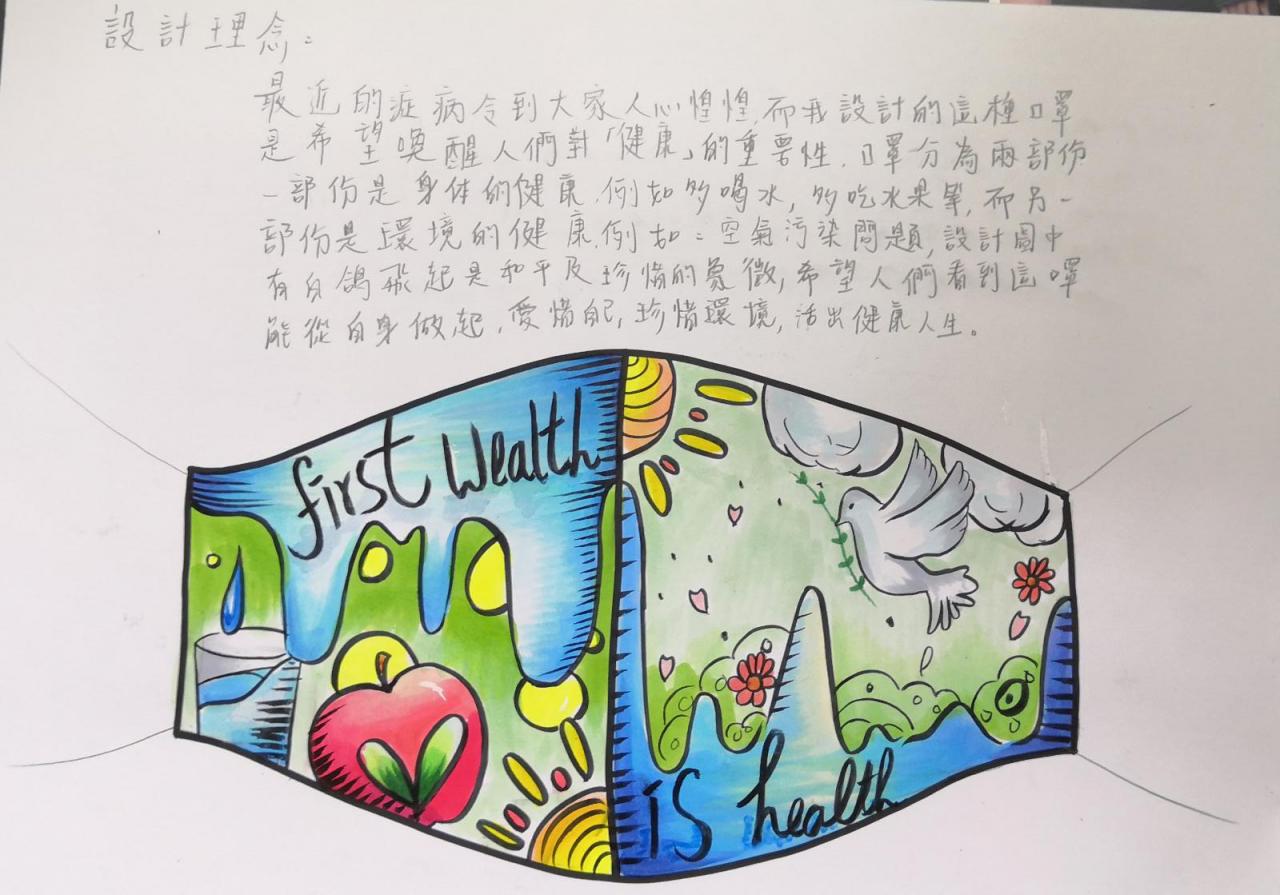 設計理念：
最近的症病令到大家人心惶惶，而我設計的這種口罩
是希望喚醒人們對「健康」的重要性．口罩分為兩部份
一部份是身体的健康．例如多喝水，多吃水果等，而另一
部份是環境的健康．例如：空氣污染問題，設計圖中
有白鴿飛起是和平及珍惜的象徵，希望人們看到這罩
能從自身做起，愛惜自己，珍惜環境，活出健康人生。
first Wealth
is health